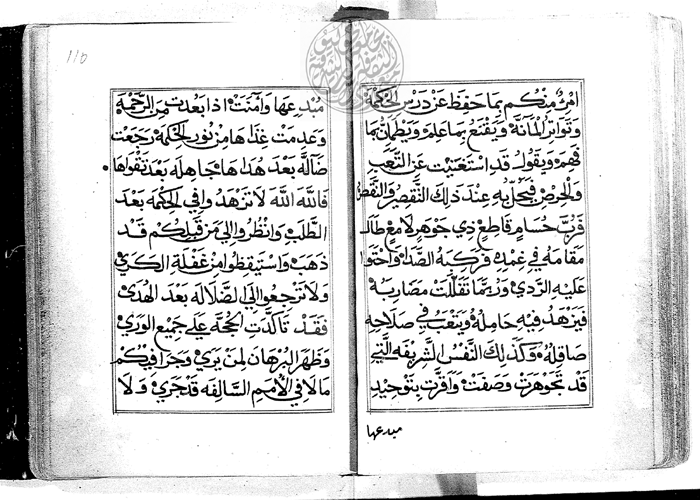 امرؤ منكم بما حفظ عن درس الحكمة
وتواتر المآنة ويقنع بما علمه ويطمان بما
فهمه ويقول قد استغنيت عن التعب
والحرص فيحل به عند ذلك التقصير والنقص
فرب حسام قاطع ذي جوهر لامع طال
مقامه في غمده فركبه الصدا واحتوا
عليه الردي وربما تفللت مضاربه
فيزهد فيه حامله ويتعب في صلاحه
صاقله وكذلك النفس الشريفه التي
قد تجوهرت وصفت واقرت بتوحيد
مبدعها
110
مبدعها وامنت اذا بعدت من الرحمة
وعدمت غذاها من نور الحكمة رجعت
ضالة بعد هداها جاهله بعد تقواها
فالله الله لا تزهدوا في الحكمة بعد
الطلب وانظروا الي من قبلكم قد
ذهب واستيقظوا من غفلة الكري
ولا ترجعوا الي الضلاله بعد الهدي
فقد تاكدت الحجة علي جميع الوري
وظهر البرهان لمن يري وجرا فيكم
ما لا في الأمم السالفه قد جري ولا